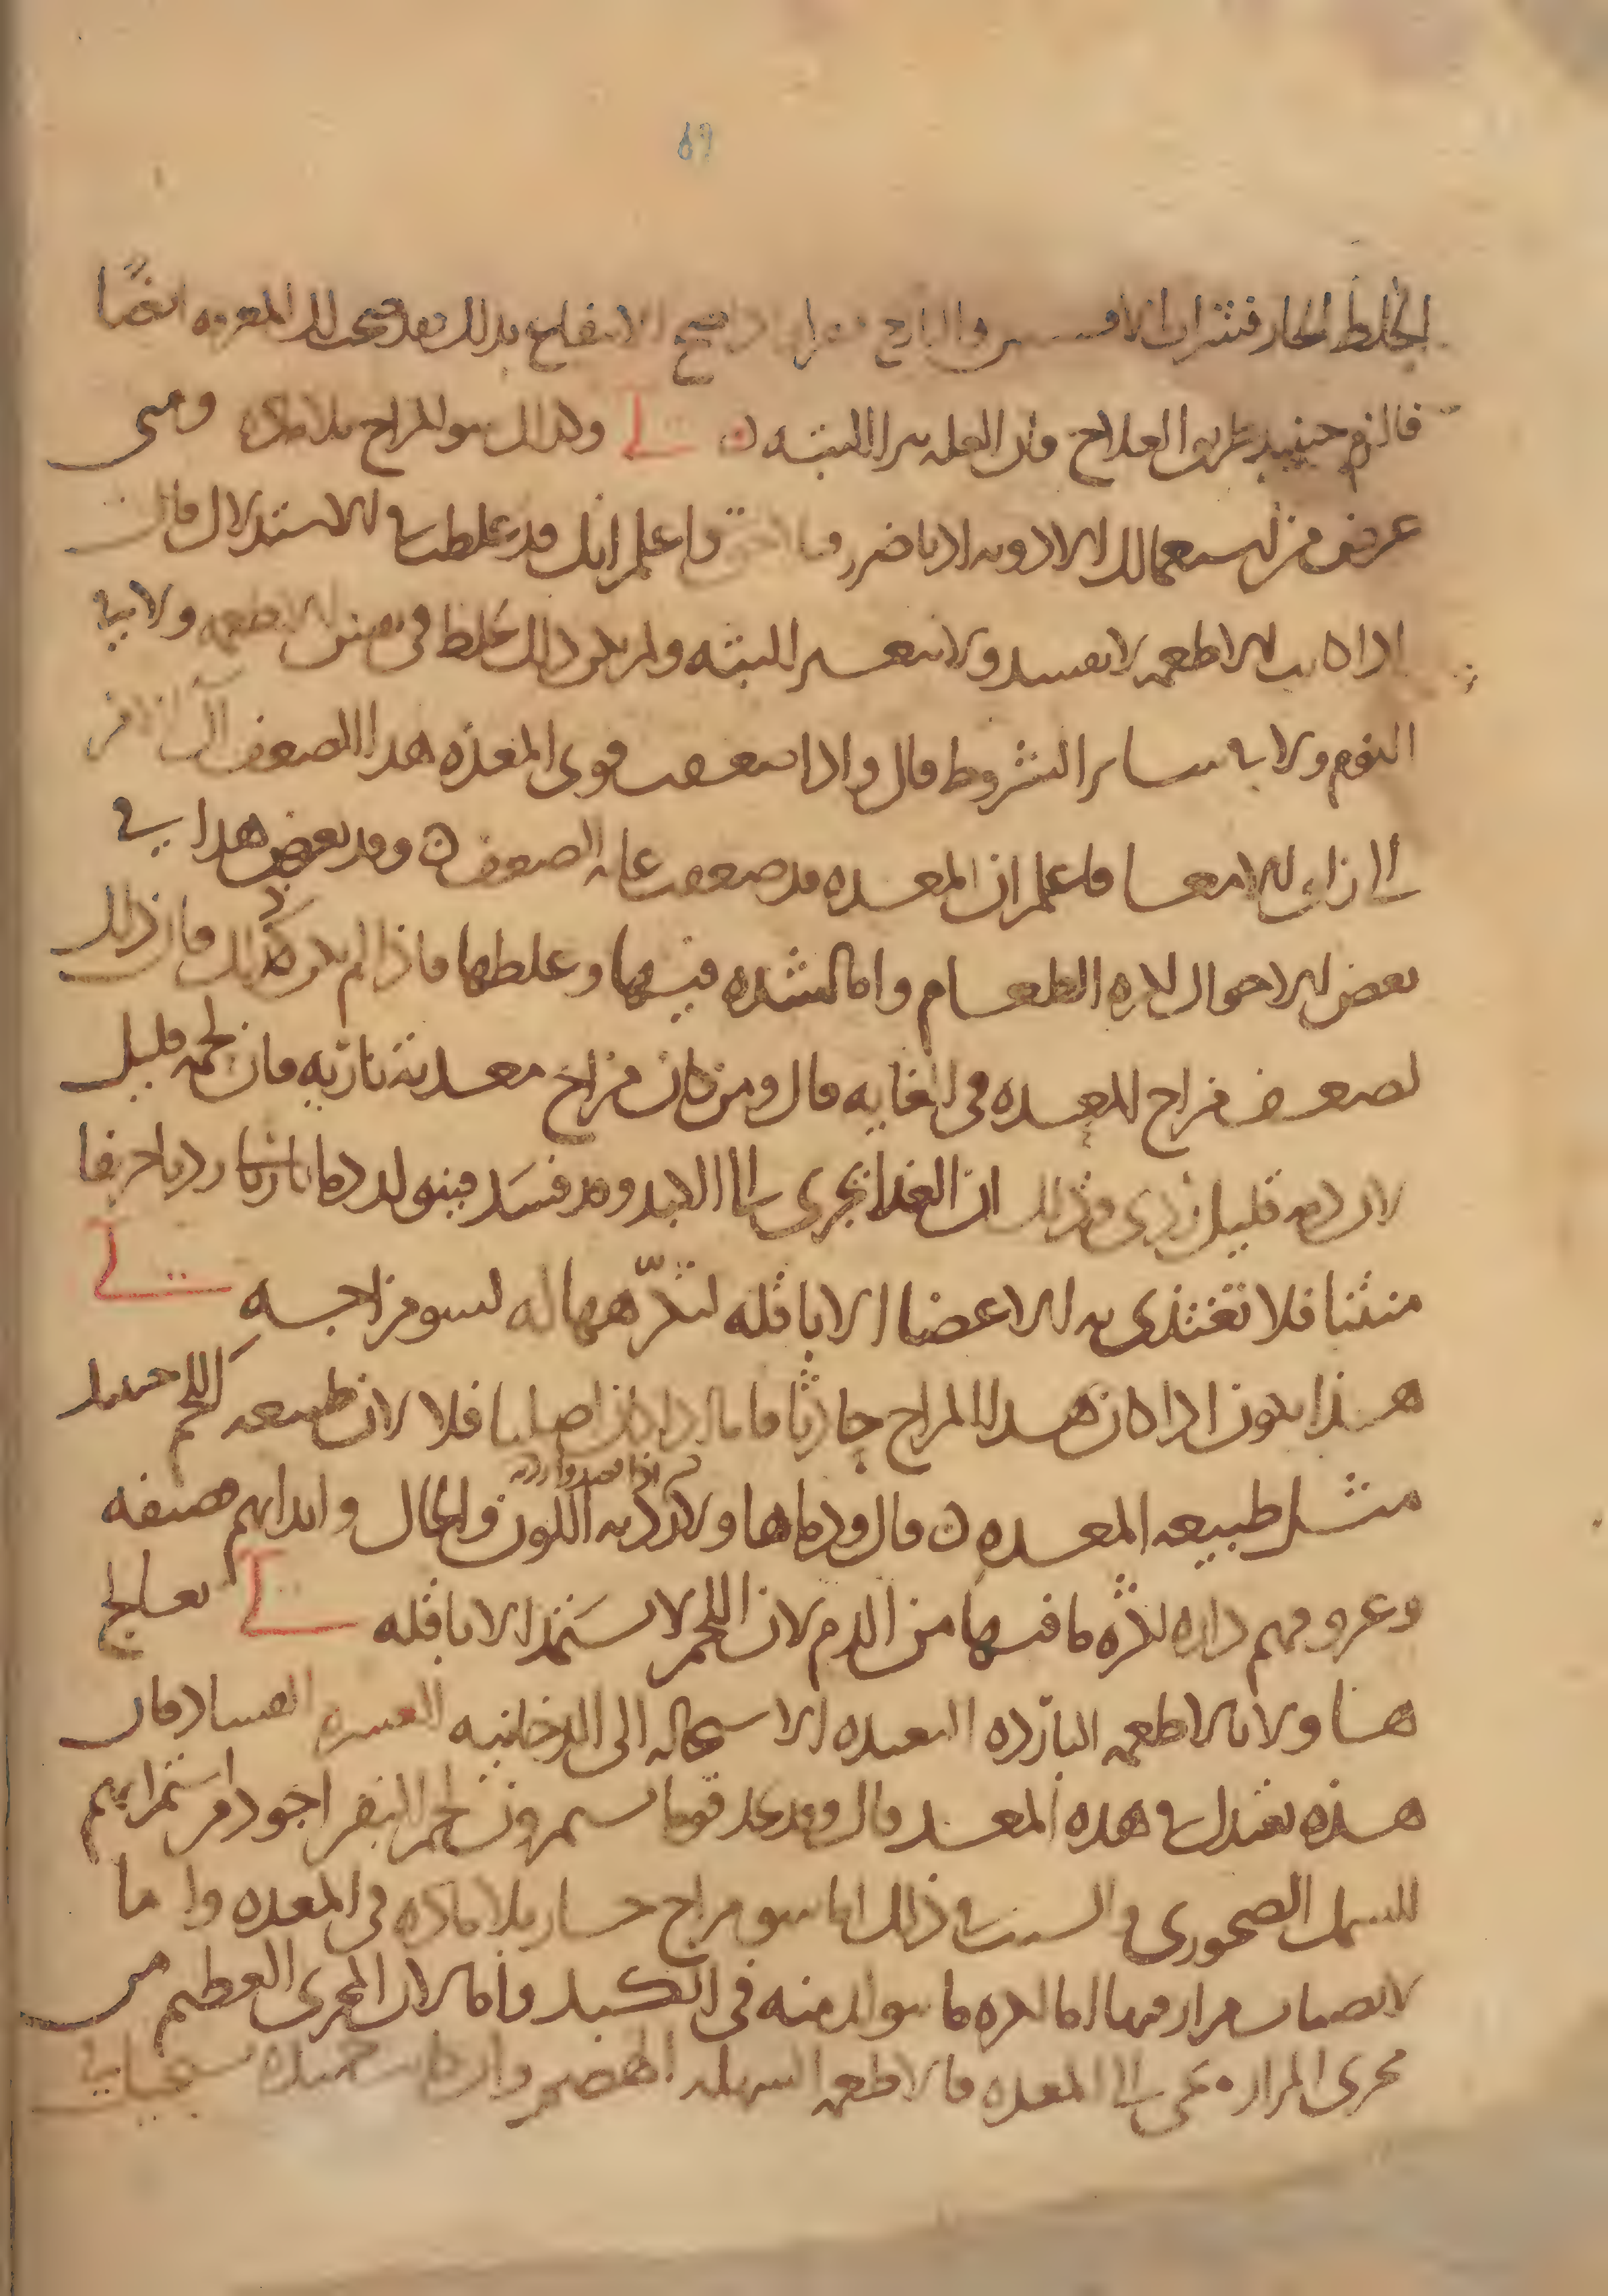 69
الخلط الحار فشراب الافسنتين والايارج فان صح الانتفاع بذلك فقد صحت لك المعرفه ايضًا
فالزم حينيد طريق العلاج فان العله تبرا البتـه ن لى وكذلك سو المزاج بلا ماده ومتى
عرض من استعمالك الادويه اذنا ضرر فاعلم انك قد غلطت في الاستدلال قال
اذا كانت الاطعمه لا تفسد ولا تتغيـر البته ولم يكن ذلك لغلط في بعض الاطعمه ولا في
النوم ولا في سـاير الشروط قال واذا ضعفت قوى المعده هذا الضعف
الى زلق الامعـا فاعلم ان المعـده قد ضعفت غايه الضعف ن وقد يعرض هذا في
بعض الاحوال لكثره الطعـام واما لشده فيها وغلطها فاذا لم يكن كذلك فان ذلك
لضعـف مزاج المعـده في الغايه قال ومن كان مزاج معـدته ناريه فان لحمه قليل
لان دمه قليل ردي وذلك ان الغذا يجرى الى الكبد وقد فسَد فيتولد دما ردیا حريفا
منتنا فلا تغتذى به الاعضا الا باقله لتكرّهها له لسو مزاجـه لى
هـذا يكون اذا كان هـذا المزاج حادثا فاما اذا كان اصليا فلا لان طبيعه اللحم حينيد
مثـل طبيعه المعـده ن قال ودماها ولا رديه اللون والحال وابدانهم قضيفه
وعروقهم داره لكثره ما فيها من الدم لان اللحم لا يستمد الا باقله لى يعـالج
هـاولا بالاطعمه البارده البعيده الاستحاله الى الدخانيه العسره الفساد فان
هـذه تعتدل في هذه المعـد قال وقد نجد قوما يستمرون لحم البقر اجود من استمرايهم
للسمك الصخورى والسبب في ذلك اما سو مزاج حـار بلا ماده في المعده واما
لانصباب مرار فيها اما لكثره ما يتولد منه في الكبـد واما لان المجرى العظيم من
مجرى المرار يجى الى المعده فالاطعمه السهله الهضم وان كانت حميده تستحيل في